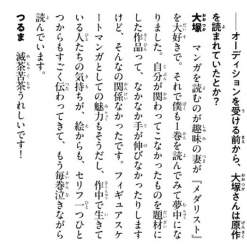 ――オーディションを受ける前から、大塚さんは原作
を読まれていたとか?
大塚 マンガを読むのが趣味の妻が『メダリスト』
を大好きで、それで僕も1巻を読んでみて夢中にな
りました。自分が関わってこなかったものを題材に
した作品って、なかなか手が伸びなかったりします
けど、そんなの関係なかったです。フィギュアスケ
ートマンガとしての魅力もそうだし、作中で生きて
いる人たちの気持ちが、絵からも、セリフ一つひと
つからもすごく伝わってきて、もう毎巻泣きながら
読んでいます。
つるま 滅茶苦茶うれしいです!